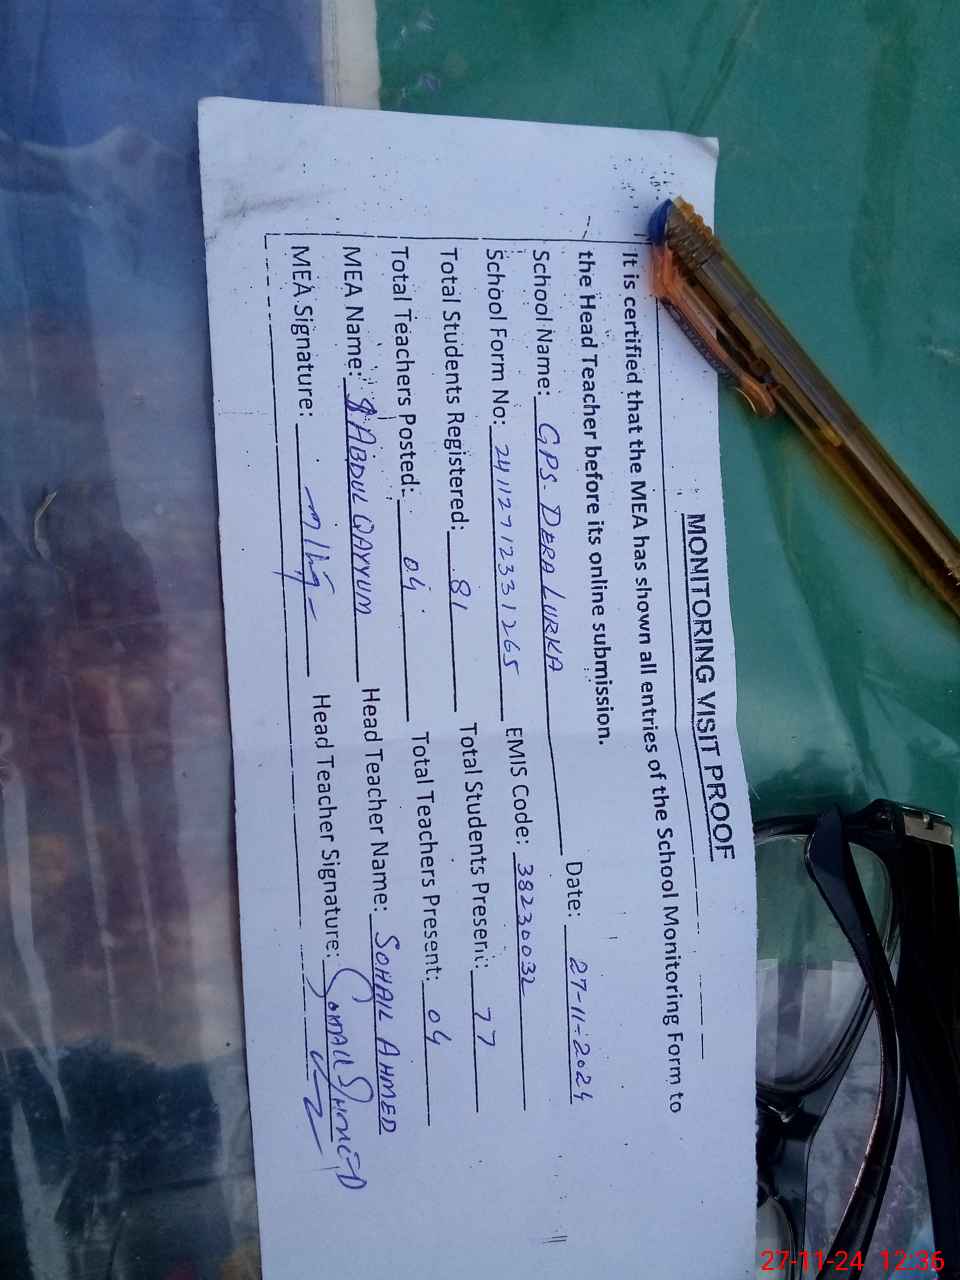 MONITORING VISIT PROOF
It is certified that the MEA has shown all entries of the School Monitoring Form to
the Head Teacher before its online submission.
School Name: GPS. DERA LURKA Date: 27-11-2024
School Form No: 24112712331265 EMIS Code: 38230032
Total Students Registered: 81 Total Students Present: 77
Total Teachers Posted: 04 Total Teachers Present: 04
MEA Name: ABDUL QAYYUM Head Teacher Name: SOHAIL AHMED
MEA Signature: Head Teacher Signature:
27-11-24 12:36